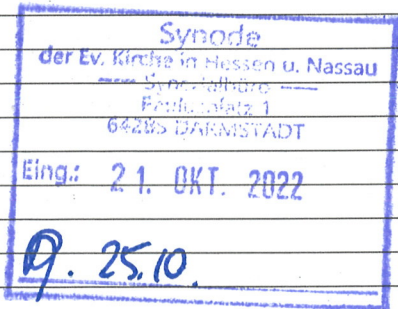 Synode
der Ev. Kirche in Hessen u. Nassau
Synodalbüro
Paulusplatz 1
64285 DARMSTADT
Eing.: 21. OKT. 2022
25.10.